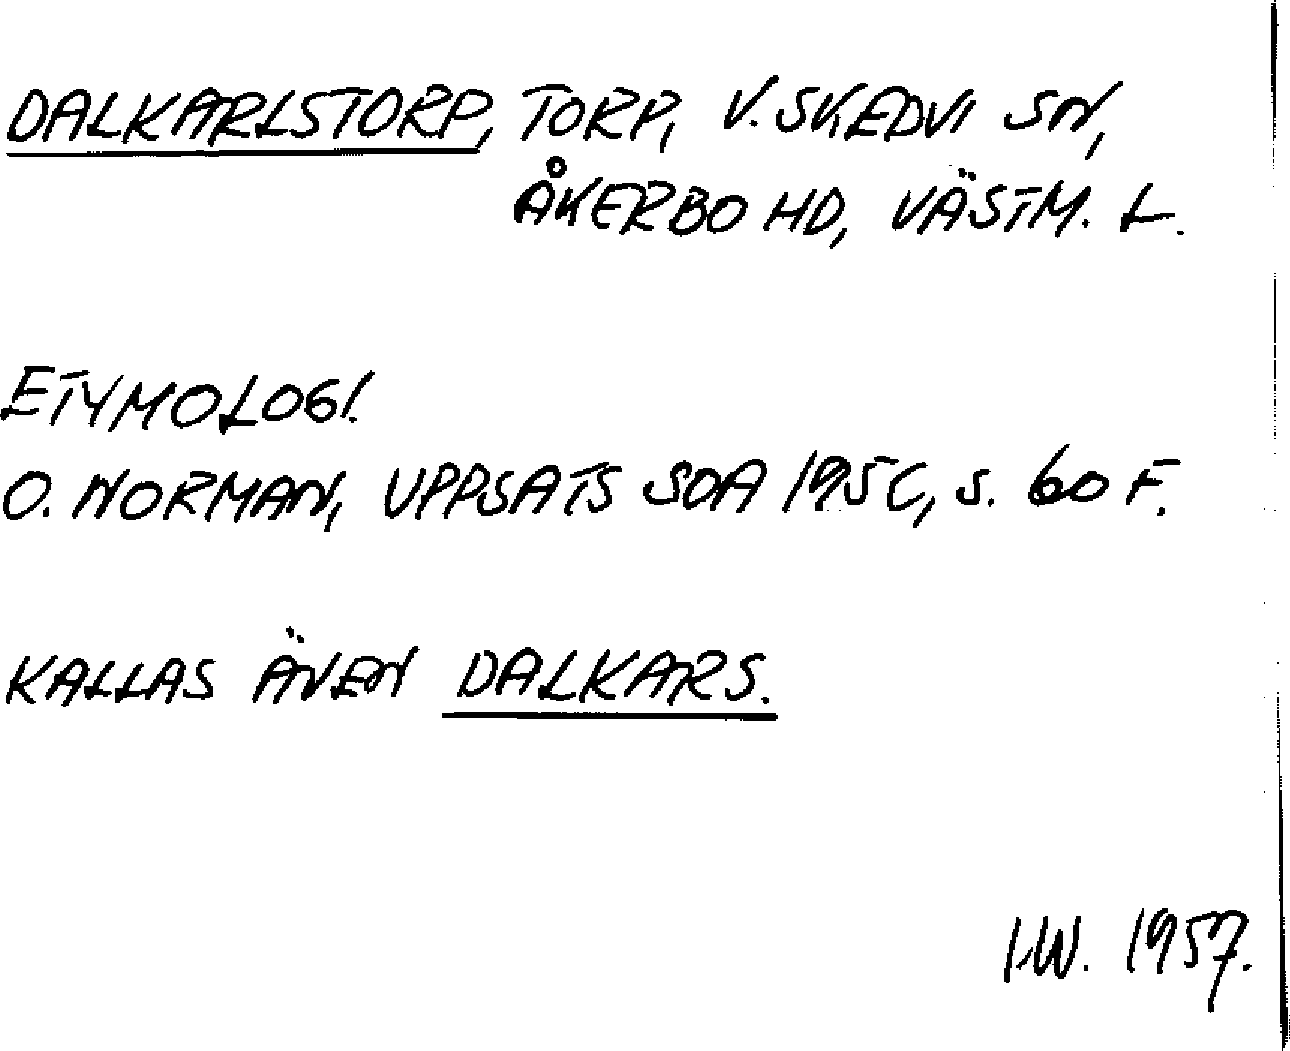 DALKARLSTORP, TORP, V. SKEDVI SN,
ÅKERBO HD, VÄSTM. L.
ETYMOLOGI.
O. NORMAN, UPPSATS SOA 1956, s. 60 F.
KALLAS ÄVEN DALKARS.
I.W. 1957.